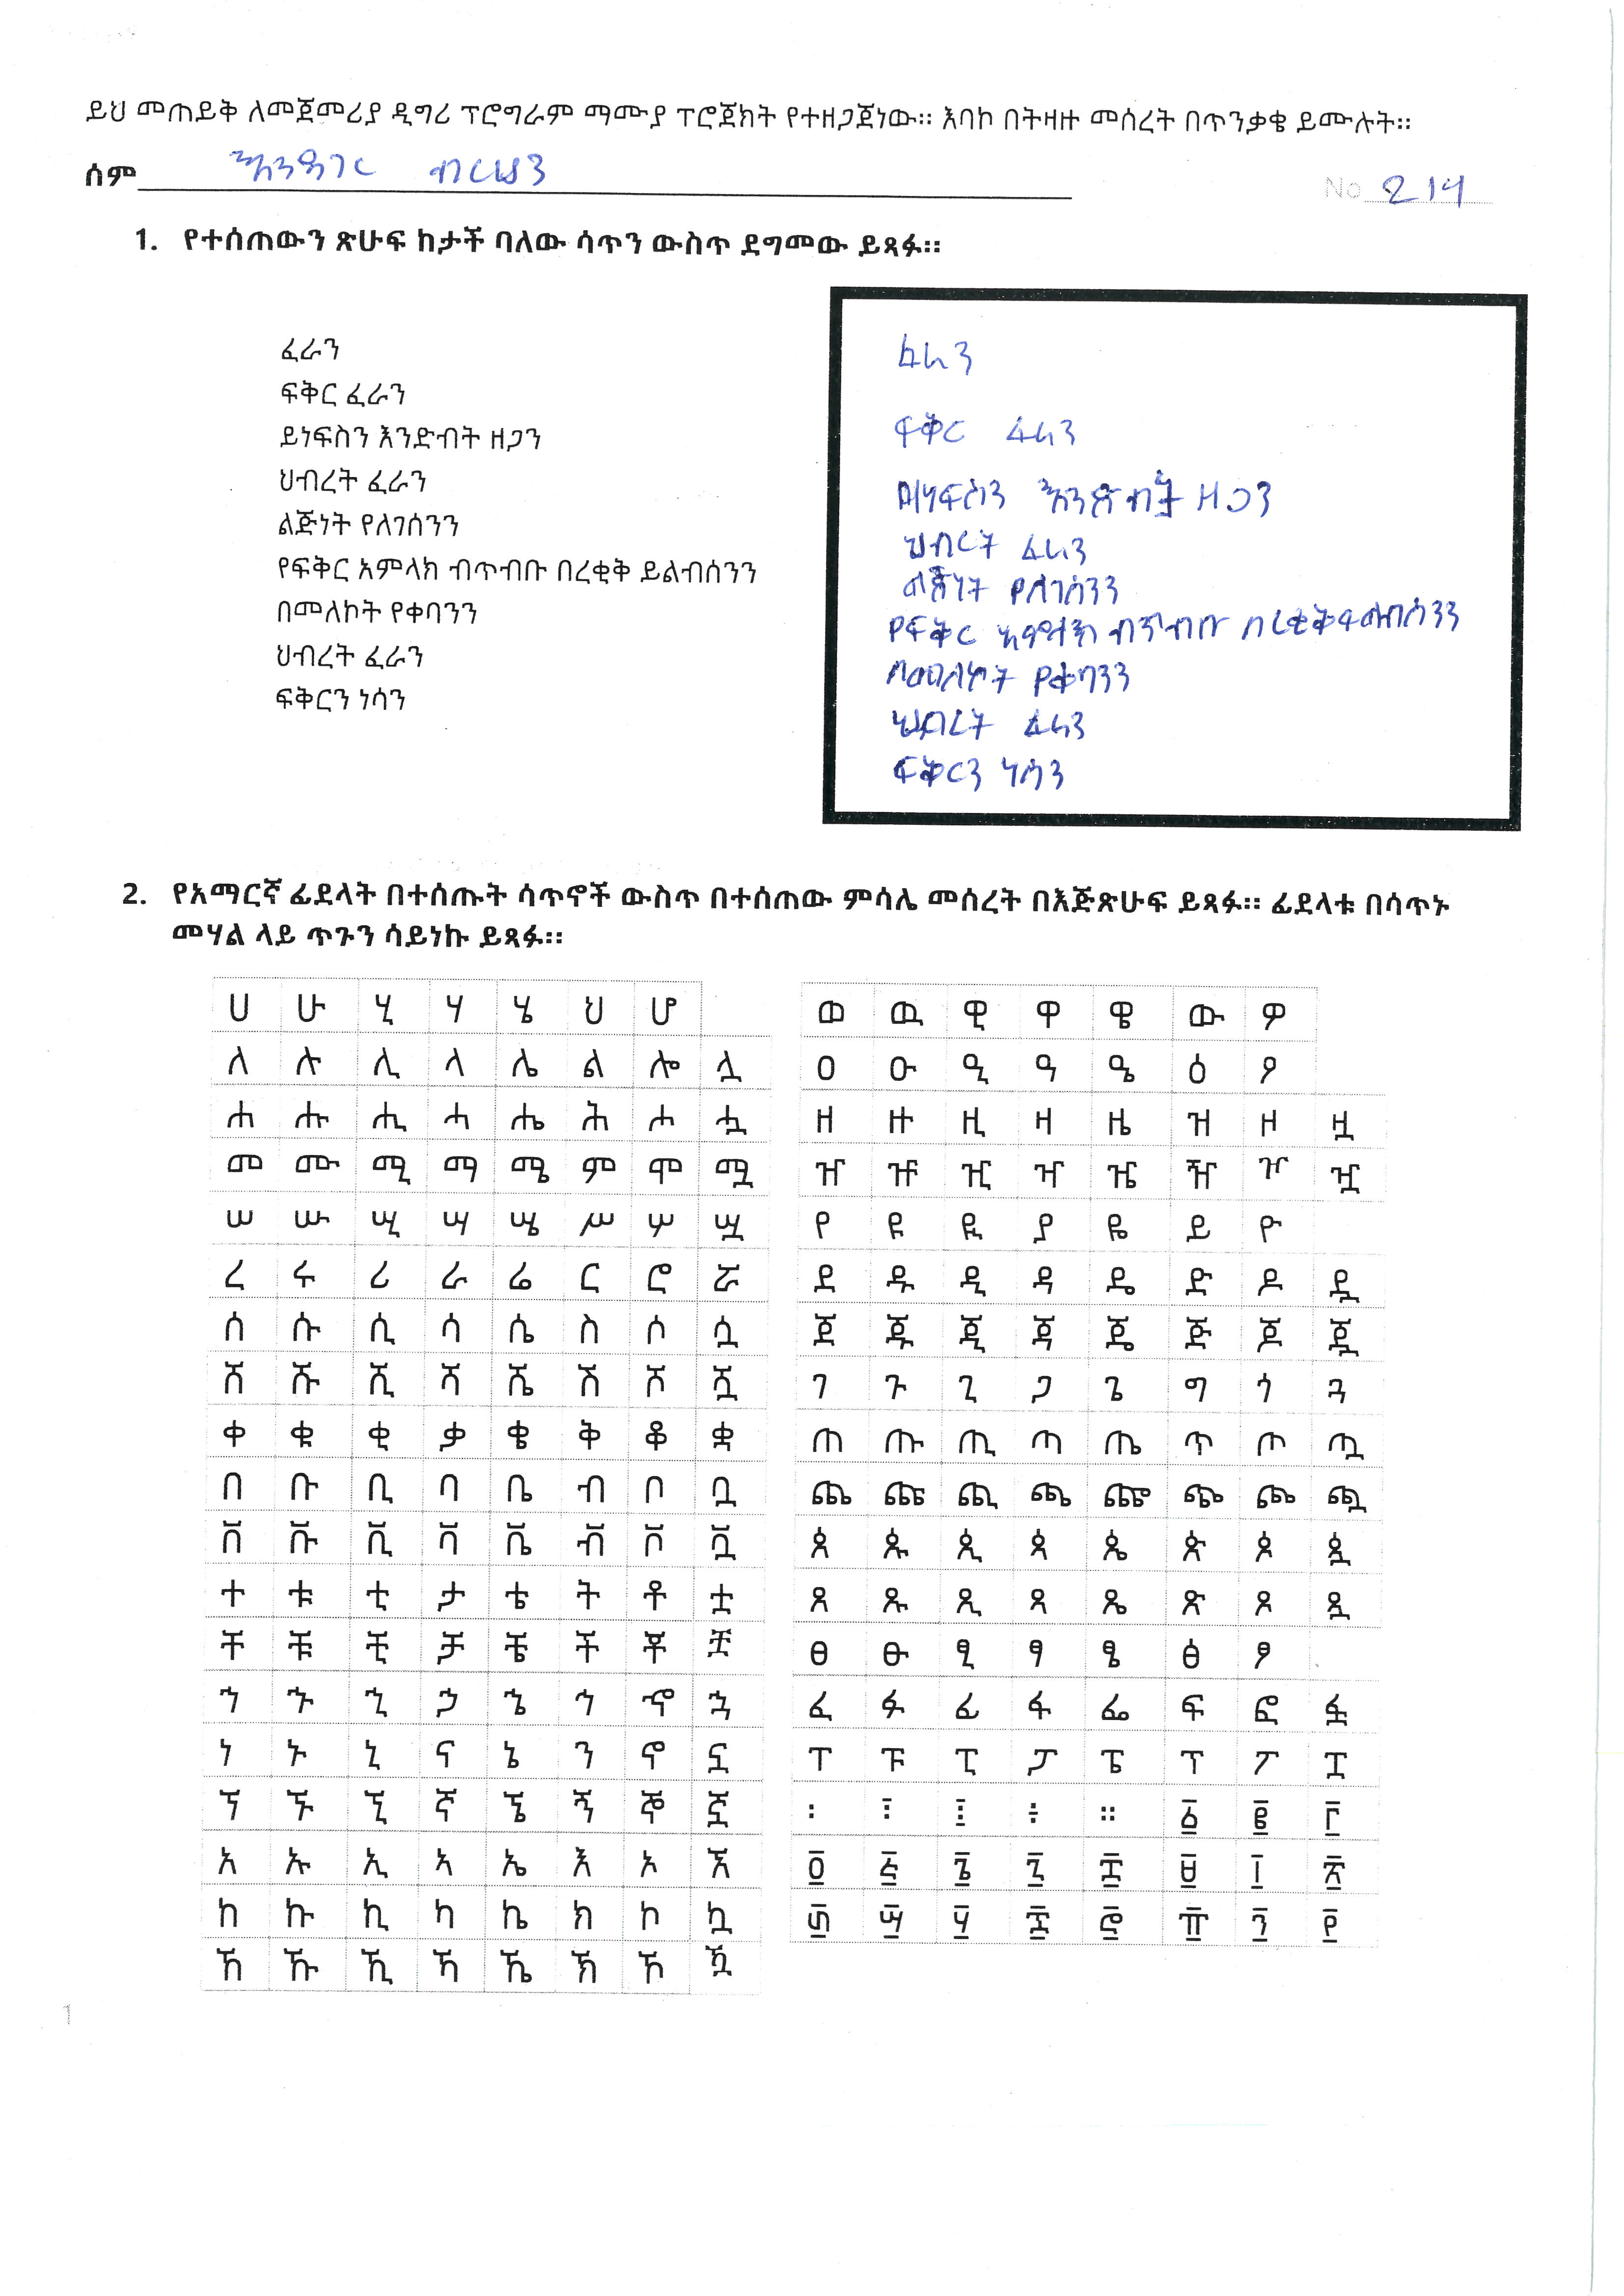 ይህ መጠይቅ ለመጀመሪያ ዲግሪ ፕሮግራም ማሙያ ፕሮጀክት የተዘጋጀነው። እባኮ በትዛዙ መሰረት በጥንቃቄ ይሙሉት።
ሰም እንዳገር ብርሀን No 214
1. የተሰጠውን ጽሁፍ ከታች ባለው ሳጥን ውስጥ ደግመው ይጻፉ።
ፈራን
ፍቅር ፈራን
ይነፍስን እንድብት ዘጋን
ህብረት ፈራን
ልጅነት የለገሰንን
የፍቅር አምላክ ብጥብቡ በረቂቅ ይልብሰንን
በመለኮት የቀባንን
ህብረት ፈራን
ፍቅርን ነሳን
ፈራን
ፍቅር ፈራን
የነፍስን እንድብት ዘጋን
ህብረት ፈራን
ልጅነት የለገሰንን
የፍቅር አምላክ ብጥብቡ በረቂቅ ይልብሰንን
በመለኮት የቀባንን
ህብረት ፈራን
ፍቅርን ነሳን
2. የአማርኛ ፊደላት በተሰጡት ሳጥኖች ውስጥ በተሰጠው ምሳሌ መሰረት በእጅጽሁፍ ይጻፉ። ፊደላቱ በሳጥኑ
መሃል ላይ ጥጉን ሳይነኩ ይጻፉ።
ሀ ሁ ሂ ሃ ሄ ህ ሆ
ለ ሉ ሊ ላ ሌ ል ሎ ሏ
ሐ ሑ ሒ ሓ ሔ ሕ ሖ ሗ
መ ሙ ሚ ማ ሜ ም ሞ ሟ
ሠ ሡ ሢ ሣ ሤ ሥ ሦ ሧ
ረ ሩ ሪ ራ ሬ ር ሮ ሯ
ሰ ሱ ሲ ሳ ሴ ስ ሶ ሷ
ሸ ሹ ሺ ሻ ሼ ሽ ሾ ሿ
ቀ ቁ ቂ ቃ ቄ ቅ ቆ ቋ
በ ቡ ቢ ባ ቤ ብ ቦ ቧ
ቨ ቩ ቪ ቫ ቬ ቭ ቮ ቯ
ተ ቱ ቲ ታ ቴ ት ቶ ቷ
ቸ ቹ ቺ ቻ ቼ ች ቾ ቿ
ኀ ኁ ኂ ኃ ኄ ኅ ኆ ኋ
ነ ኑ ኒ ና ኔ ን ኖ ኗ
ኘ ኙ ኚ ኛ ኜ ኝ ኞ ኟ
አ ኡ ኢ ኣ ኤ እ ኦ ኧ
ከ ኩ ኪ ካ ኬ ክ ኮ ኳ
ኸ ኹ ኺ ኻ ኼ ኽ ኾ ዃ
ወ ዉ ዊ ዋ ዌ ው ዎ
ዐ ዑ ዒ ዓ ዔ ዕ ዖ
ዘ ዙ ዚ ዛ ዜ ዝ ዞ ዟ
ዠ ዡ ዢ ዣ ዤ ዥ ዦ ዧ
የ ዩ ዪ ያ ዬ ይ ዮ
ደ ዱ ዲ ዳ ዴ ድ ዶ ዷ
ጀ ጁ ጂ ጃ ጄ ጅ ጆ ጇ
ገ ጉ ጊ ጋ ጌ ግ ጎ ጓ
ጠ ጡ ጢ ጣ ጤ ጥ ጦ ጧ
ጨ ጩ ጪ ጫ ጬ ጭ ጮ ጯ
ጰ ጱ ጲ ጳ ጴ ጵ ጶ ጷ
ጸ ጹ ጺ ጻ ጼ ጽ ጾ ጿ
ፀ ፁ ፂ ፃ ፄ ፅ ፆ
ፈ ፉ ፊ ፋ ፌ ፍ ፎ ፏ
ፐ ፑ ፒ ፓ ፔ ፕ ፖ ፗ
፡ ፣ ፤ ፥ ። ፩ ፪ ፫
፬ ፭ ፮ ፯ ፰ ፱ ፲ ፳
፴ ፵ ፶ ፷ ፸ ፹ ፺ ፻
1